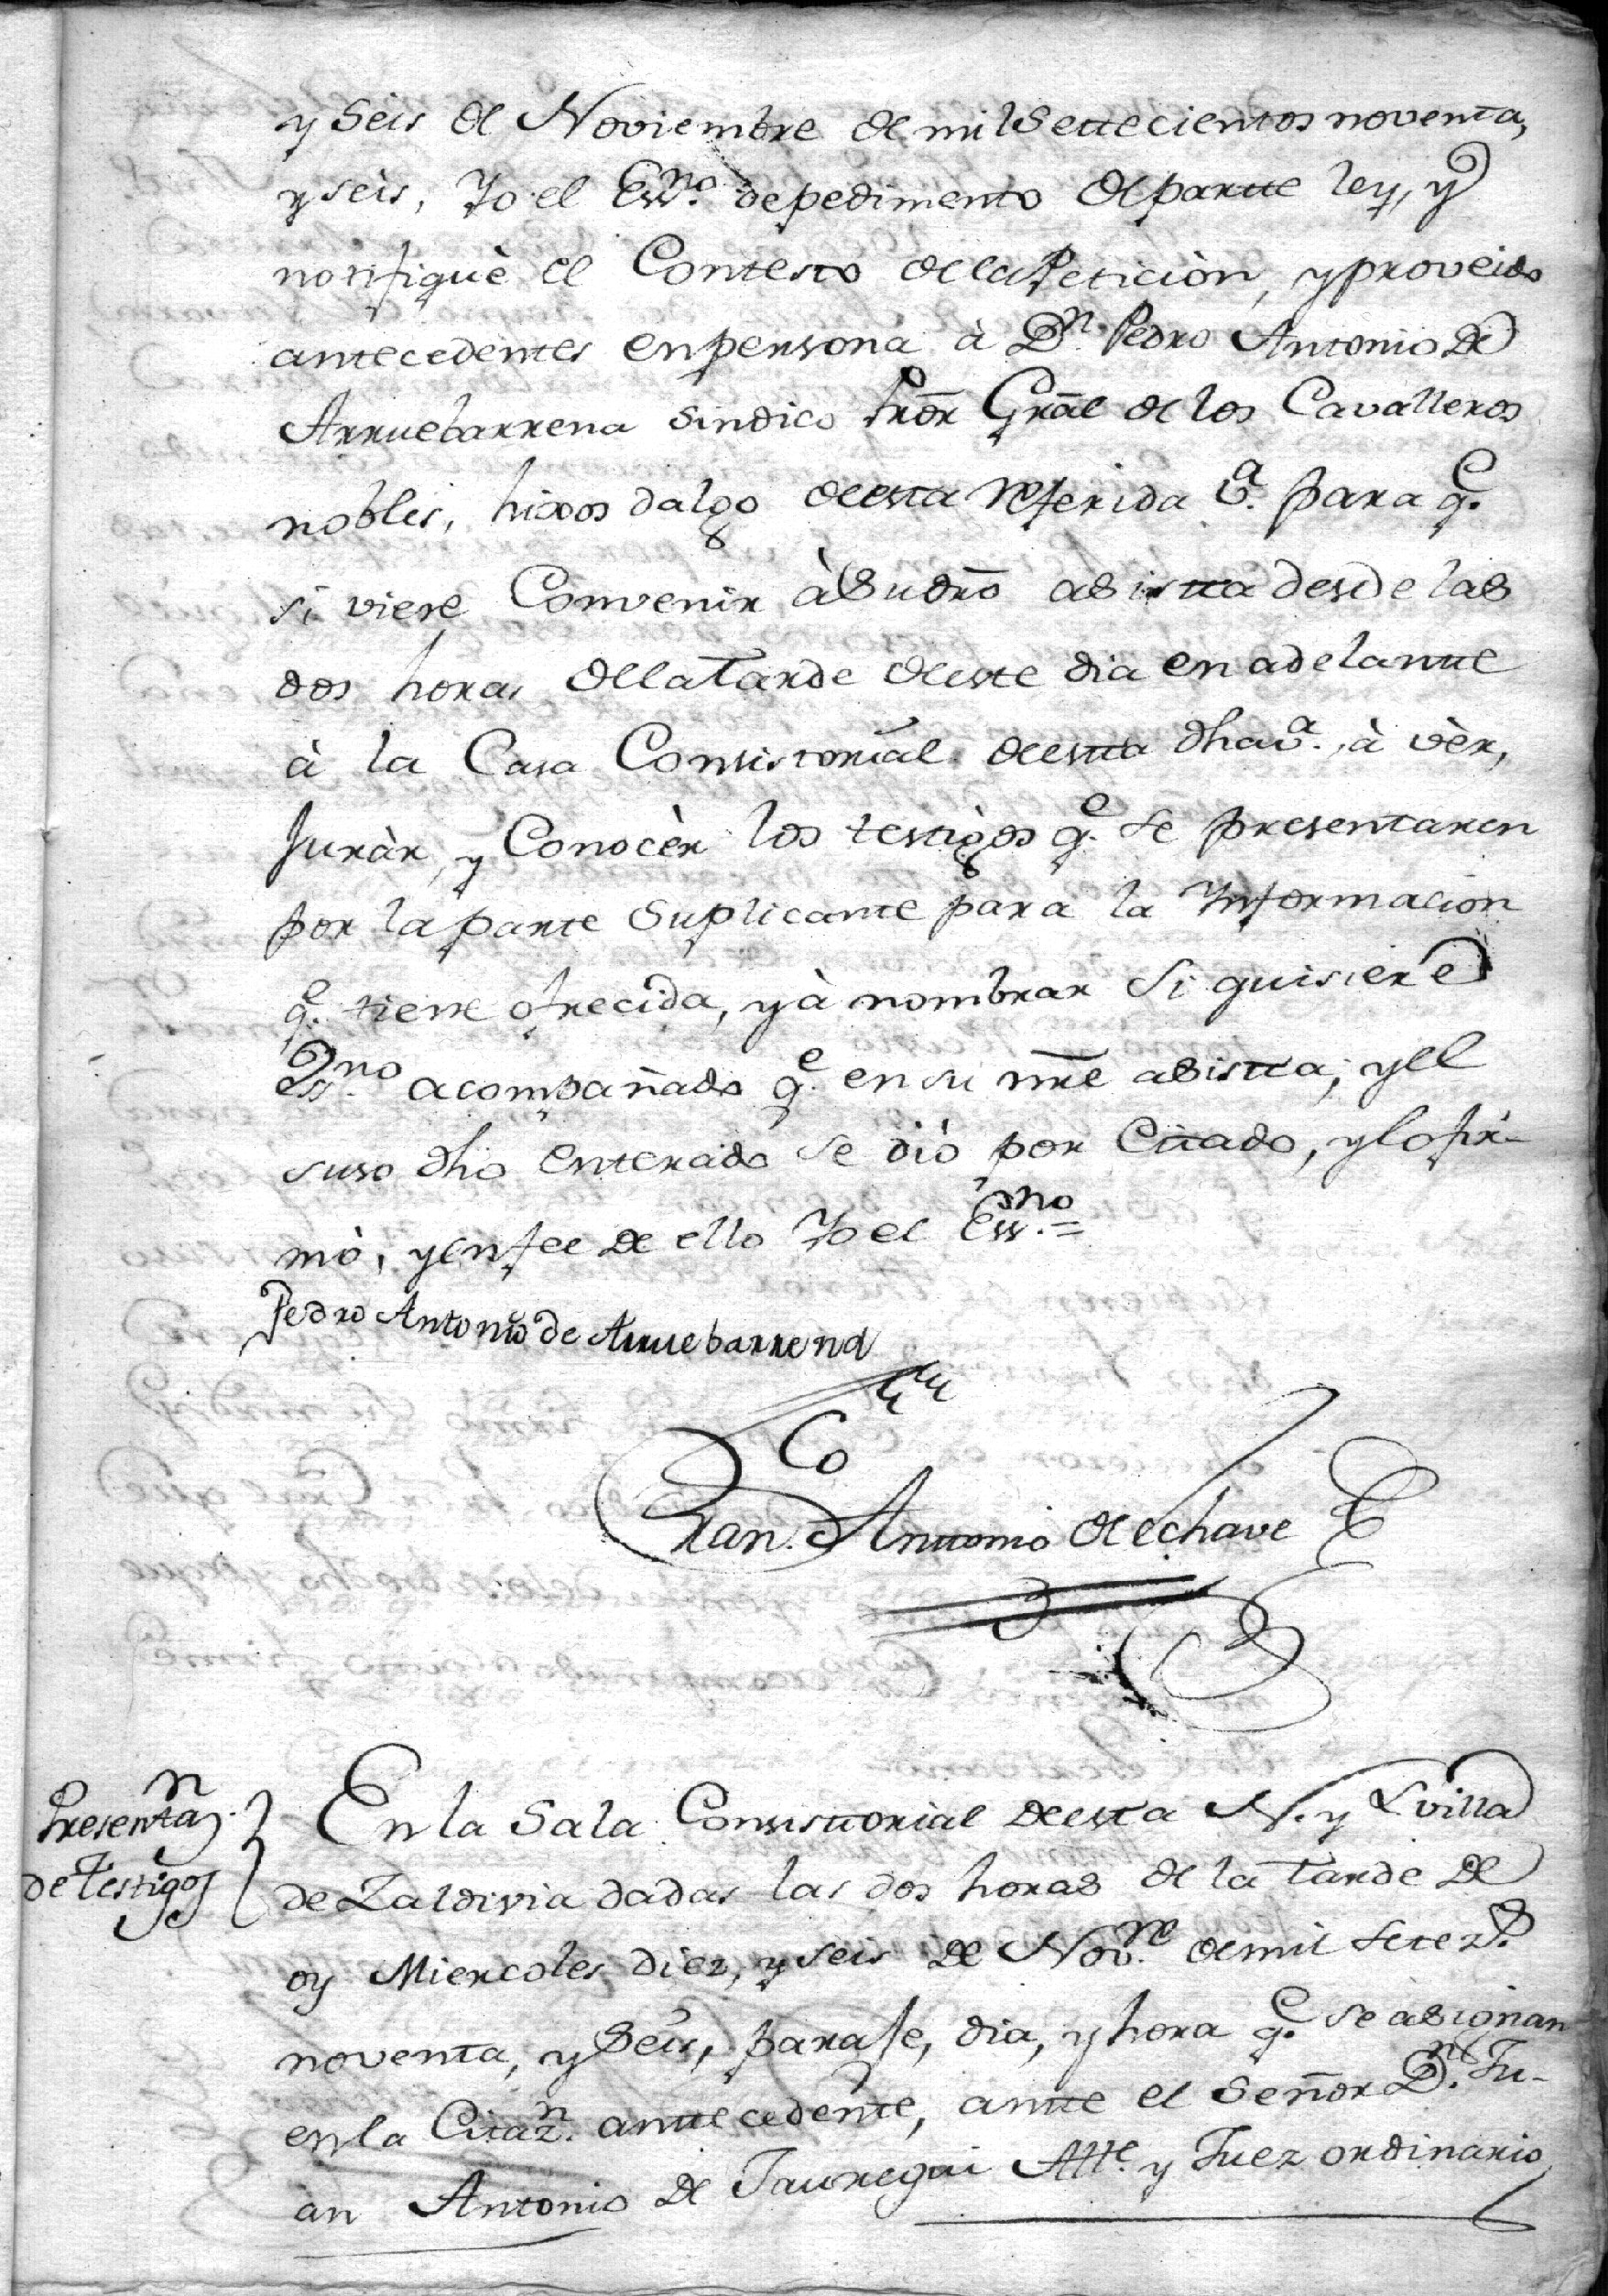 y Seis de Noviembre de mil Settecientos noventa,
y sèis, Yo el Essno. de pedimento de partte ley, y
notifiquè el Contesto de la Peticiòn, y proveido
antecedentes en persona à Dn. Pedro Antonio de
Arruebarrena Sindico Pror Gral de los Cavalleros
nobles, hixos dalgo de esta referida va. para qe.
si viere Convenir à Su dro asistta desde las
dos horas de la Tarde de este dia en adelantte
à la Casa Consistorial de estta dha va. à vèr,
Juràr, y Conocèr los testigos qe. se presentaren
por la parte Suplicante para la Ynformacion
qe. tiene ofrecida, y à nombrar Si quisiere
Essno. acompañado qe. en su nre asistta; y el
suso dho enterado se diò por Cittado, y lo fir-
mò, y en fee de ello Yo el Essno.=
Pedro Antonio de Arruebarrena
Fran. Anttonio de Echave
Presentazn.
de Testigos
En la Sala Consisttorial de esta N. y L villa
de Zaldivia dadas las dos horas de la tarde de
oy Miercoles diez, y seis de Novre. de mil setezs.
noventa, y Seis, paraje, dia, y hora qe. se asignan
en la Citazn. anttecedente, antte el Señor Dn. Ju-
an Antonio de Jauregui Alle. y Juez ordinario